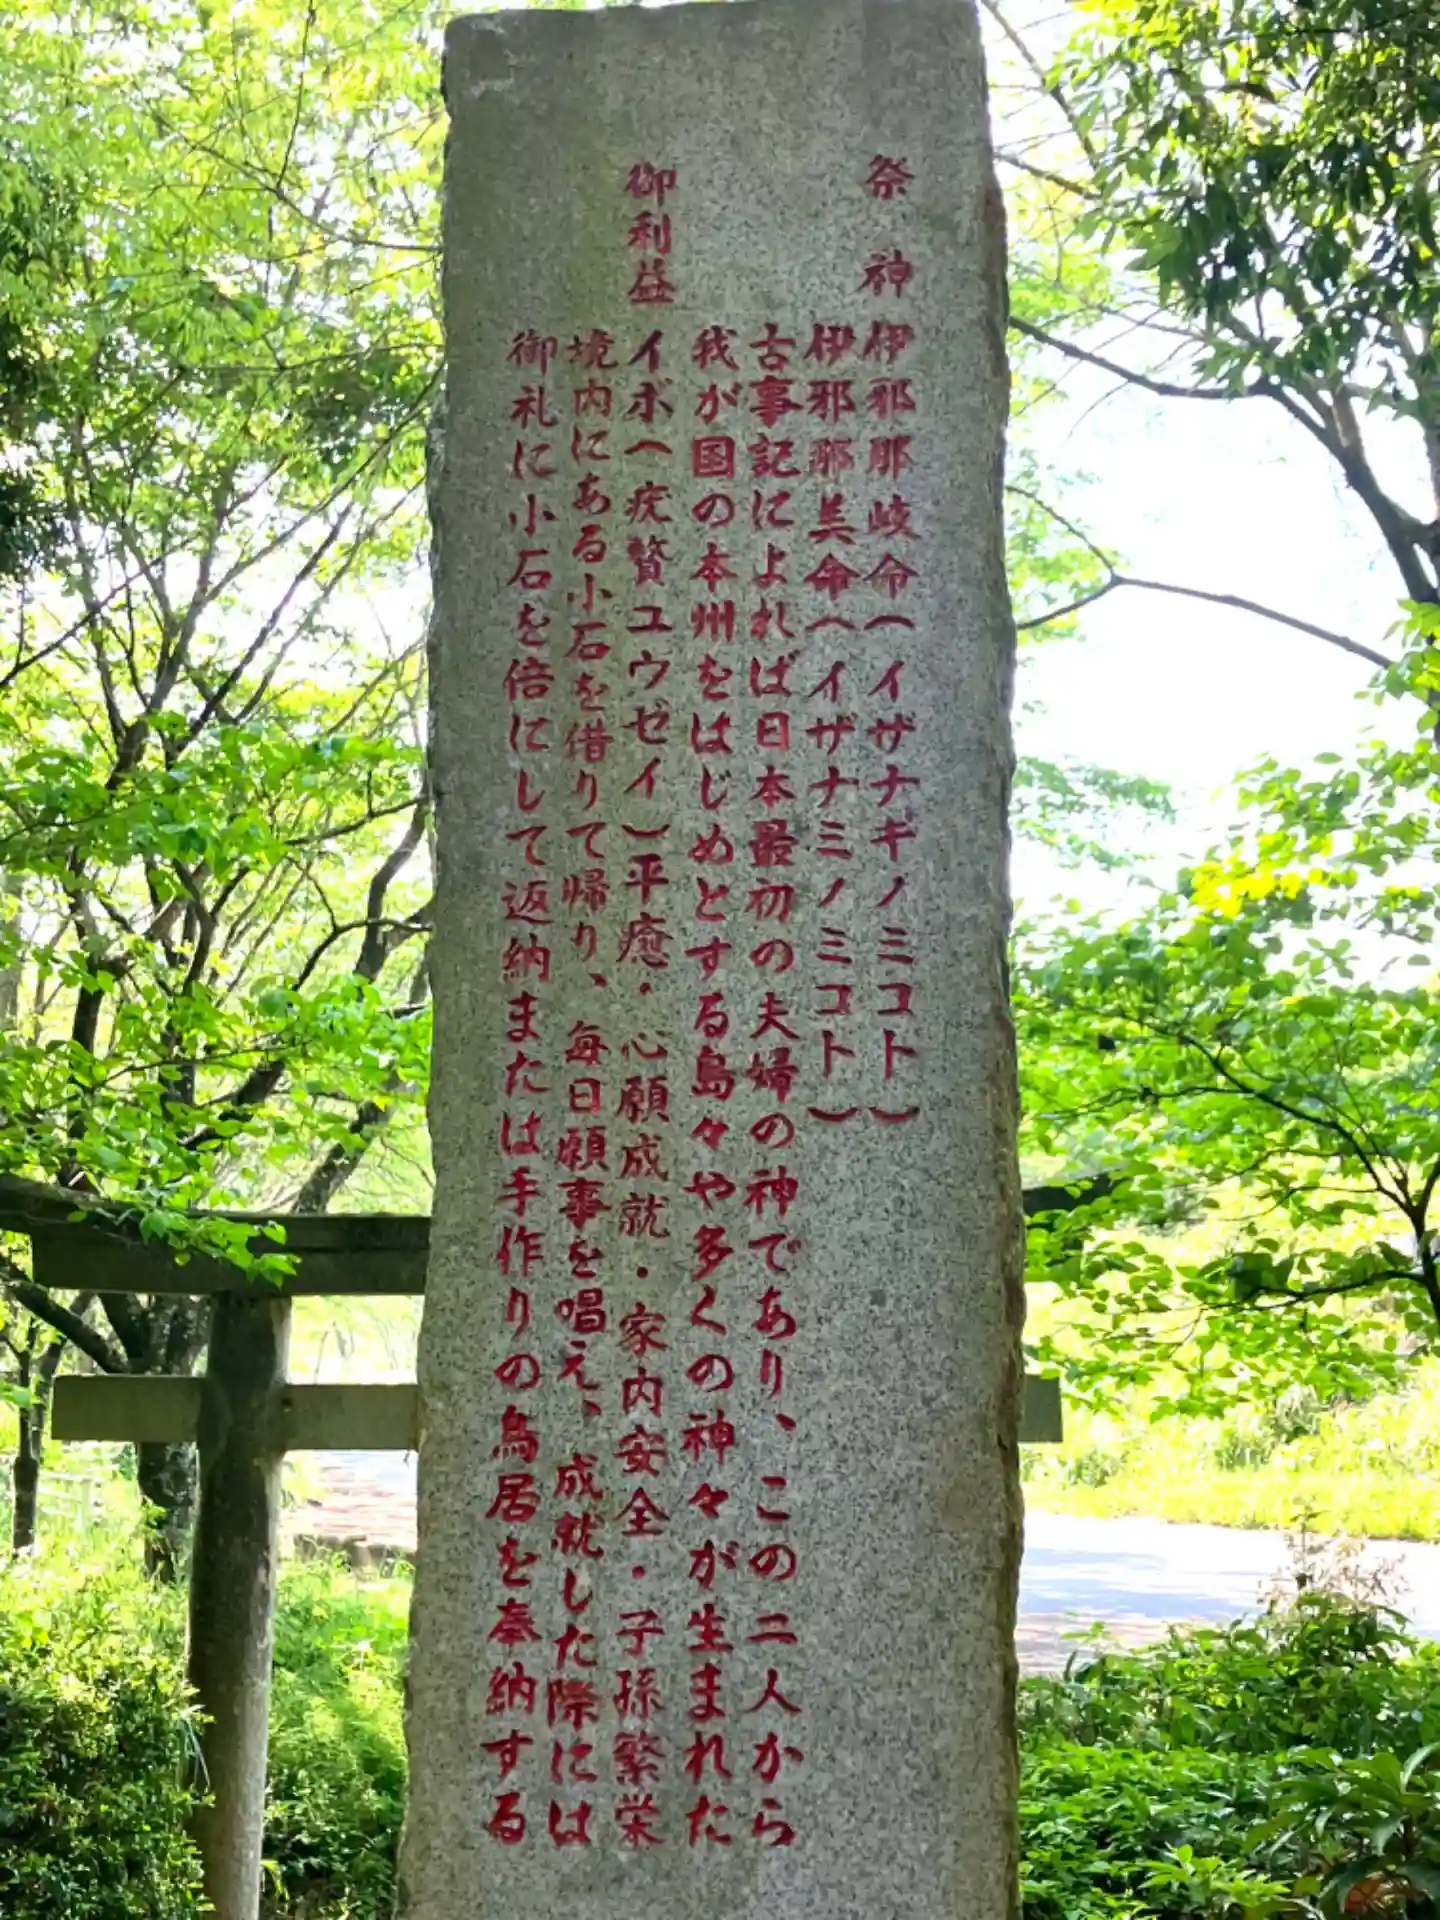 祭神 伊邪那岐命(イザナギノミコト)
伊邪那美命(イザナミノミコト)
古事記によれば日本最初の夫婦の神であり、この二人から
我が国の本州をはじめとする島々や多くの神々が生まれた
御利益 イボ(疣贅ユウゼイ)平癒・心願成就・家内安全・子孫繁栄
境内にある小石を借りて帰り、毎日願事を唱え、成就した際には
御礼に小石を倍にして返納または手作りの鳥居を奉納する